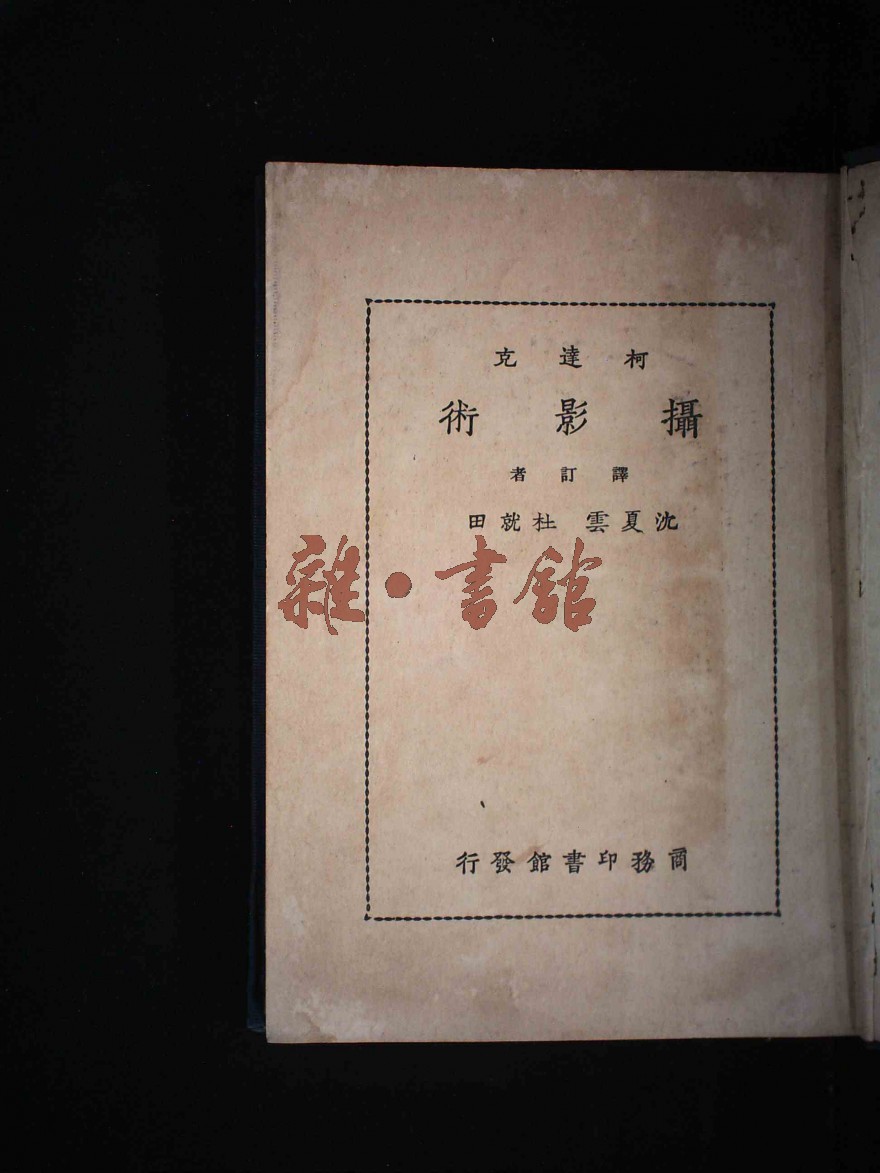 柯達克
攝影術
譯訂者
沈夏雲 杜就田
雜·書館
商務印書館發行